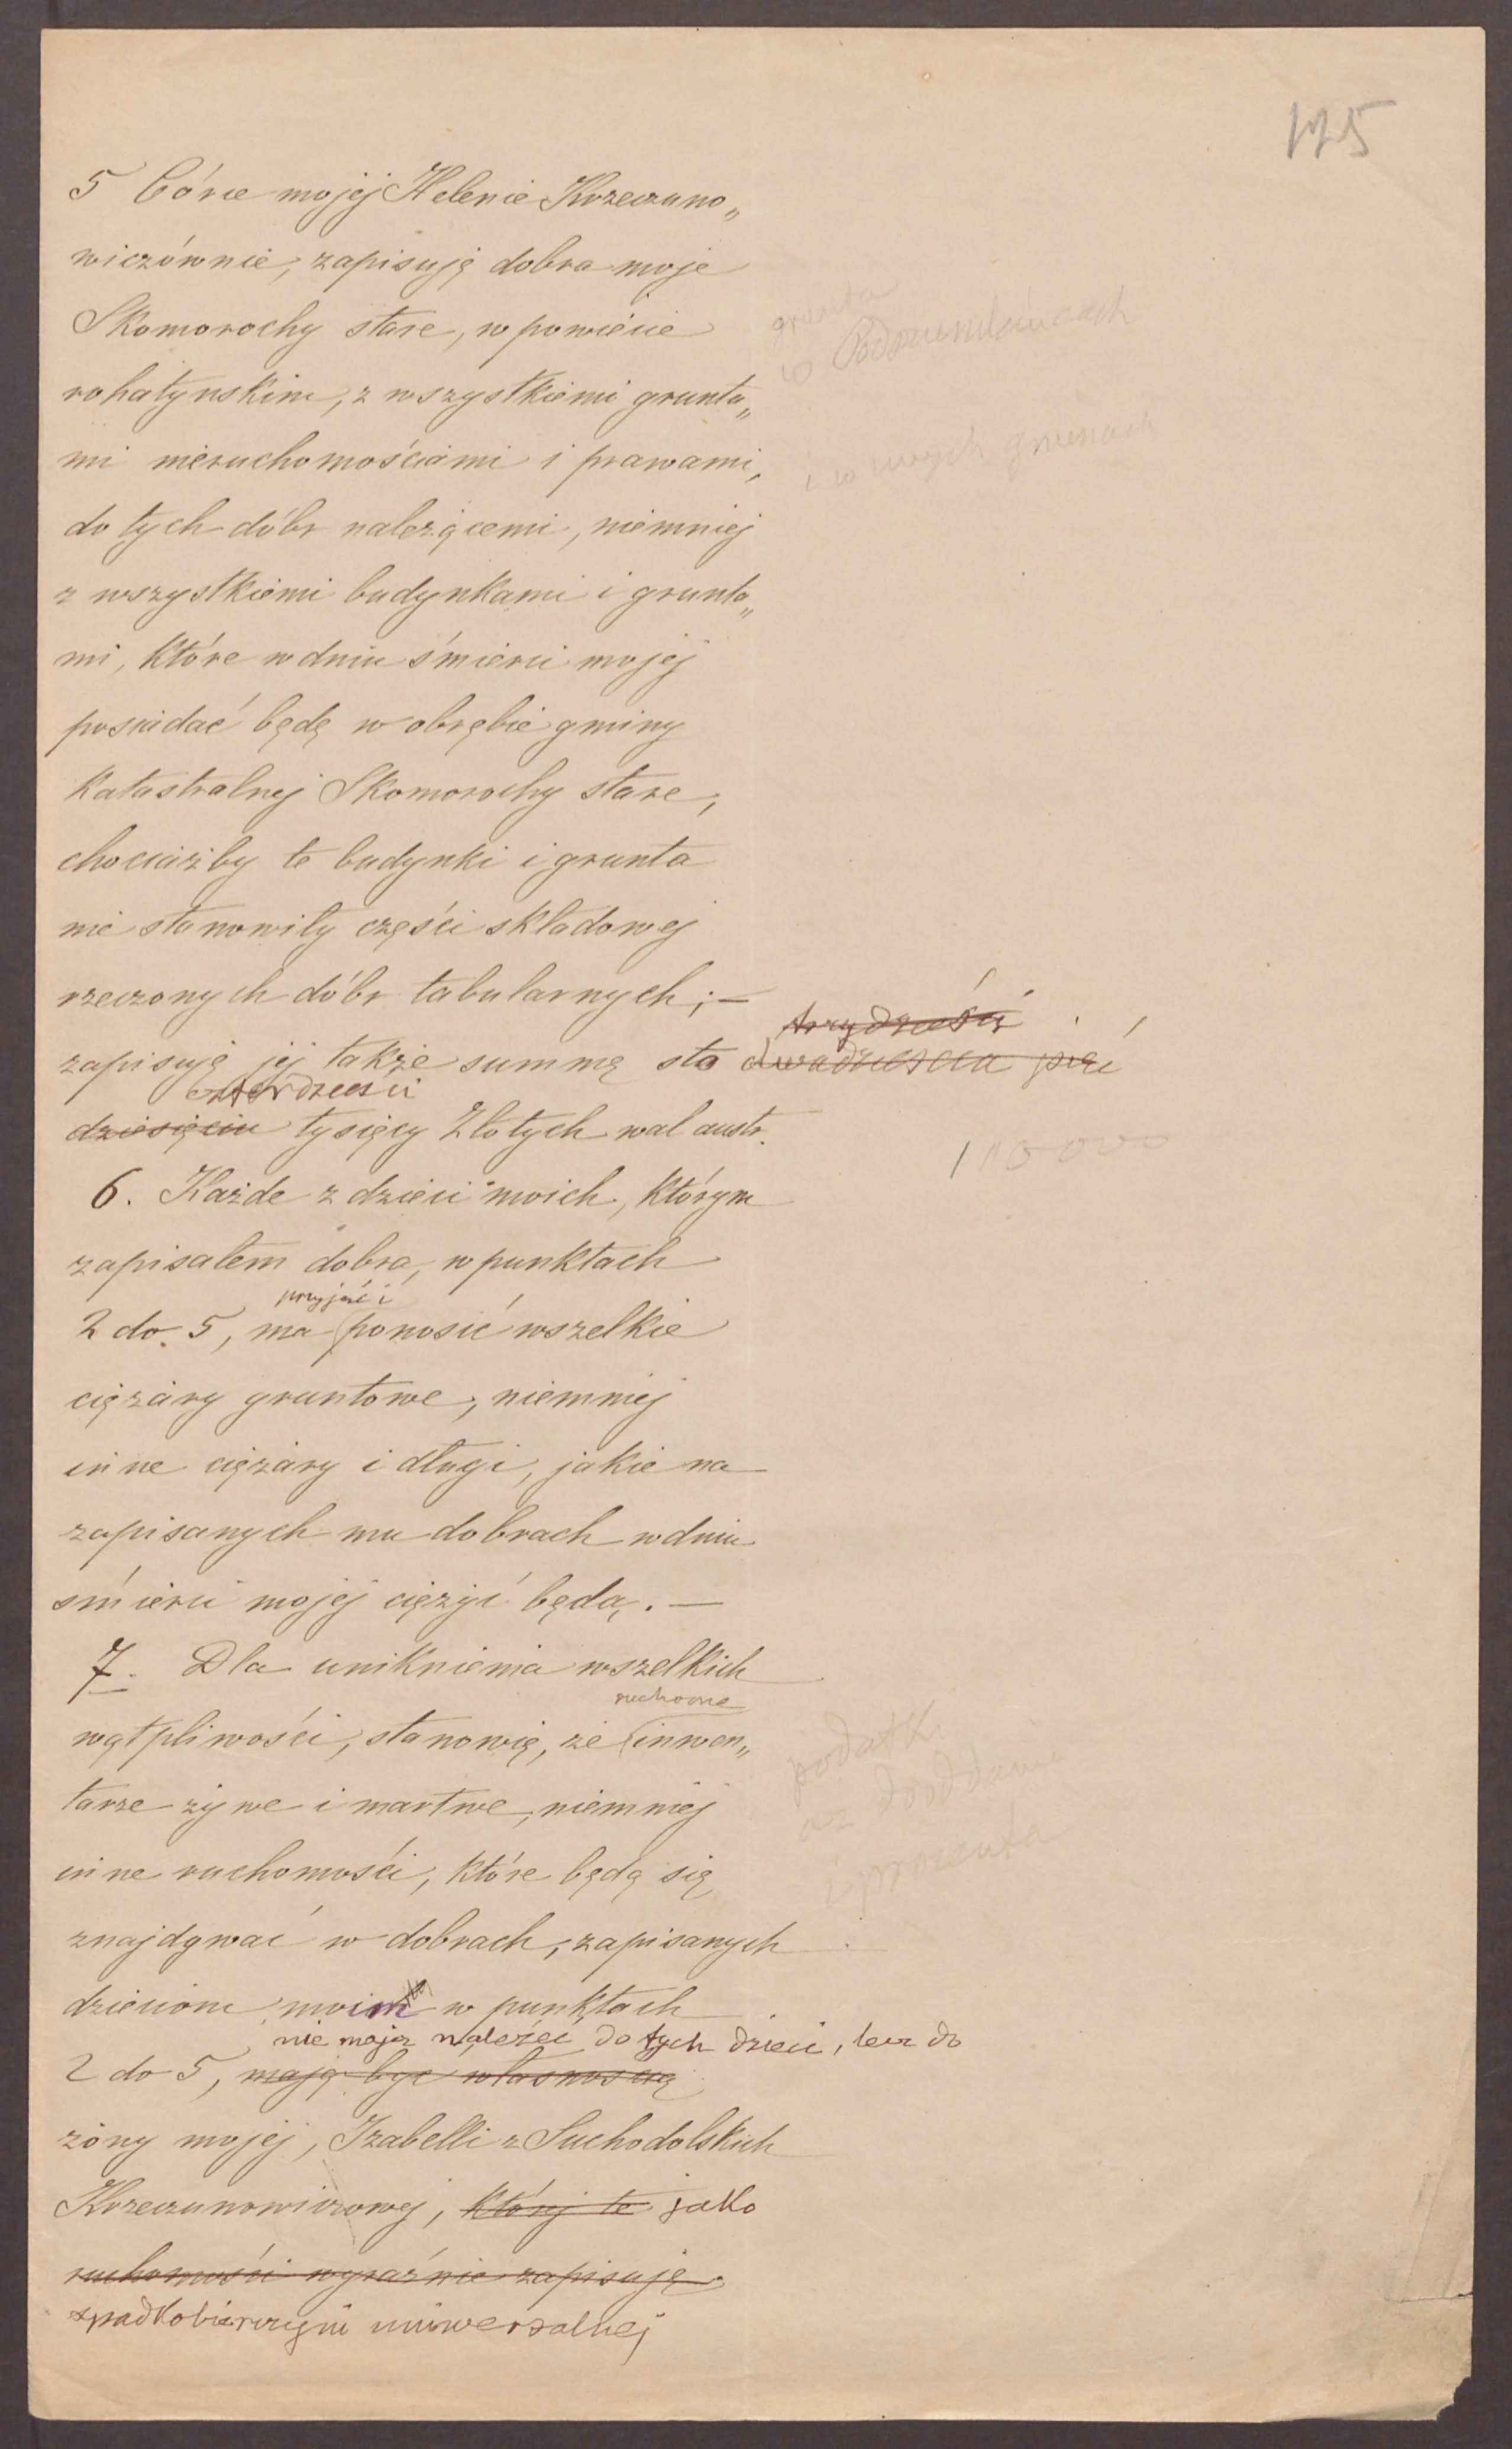 175
5 Córce mojej Helenie Krzeczuno„
wiczównie, zapisuję dobra moje
Skomorochy stare, w powiecie
grunta
w Podszumlańcach
rohatyńskim, z wszystkiemi grunta„
mi nieruchomościami i prawami,
i w innych gminach
do tych dóbr należącemi, niemniej
z wszystkiemi budynkami i grunta„
mi, które w dniu śmierci mojej
posiadać będę w obrębie gminy
Katastralnej Skomorochy stare,
chociażby te budynki i grunta
nie stanowiły części składowej
rzeczonych dóbr tabularnych; —
trzydzieści
zapisuję jej także summę sto dwadzieścia pięć
czterdzieści
dziesięciu tysięcy Złotych wal austr.
6. Każde z dzieci moich, którym
zapisałem dobra, w punktach
przyjąć i
2 do 5, ma ponosić wszelkie
ciężary gruntowe, niemniej
inne ciężary i długi, jakie na
zapisanych mu dobrach w dniu
śmierci mojej ciężyć będą. —
7. Dla uniknienia wszelkich
ruchome
wątpliwości, stanowię, że inwen„
podatki
tarze żywe i martwe, niemniej
inne ruchomości, które będą się
znajdywać w dobrach, zapisanych
dzieciom moim w punktach
nie mają należeć do tych dzieci, lecz do
2 do 5, mają być własnością
żony mojej, Izabelli z Suchodolskich
Krzeczunowiczowej, której te jako
ruchomości wyraźnie zapisuję
spadkobierczyni uniwersalnej